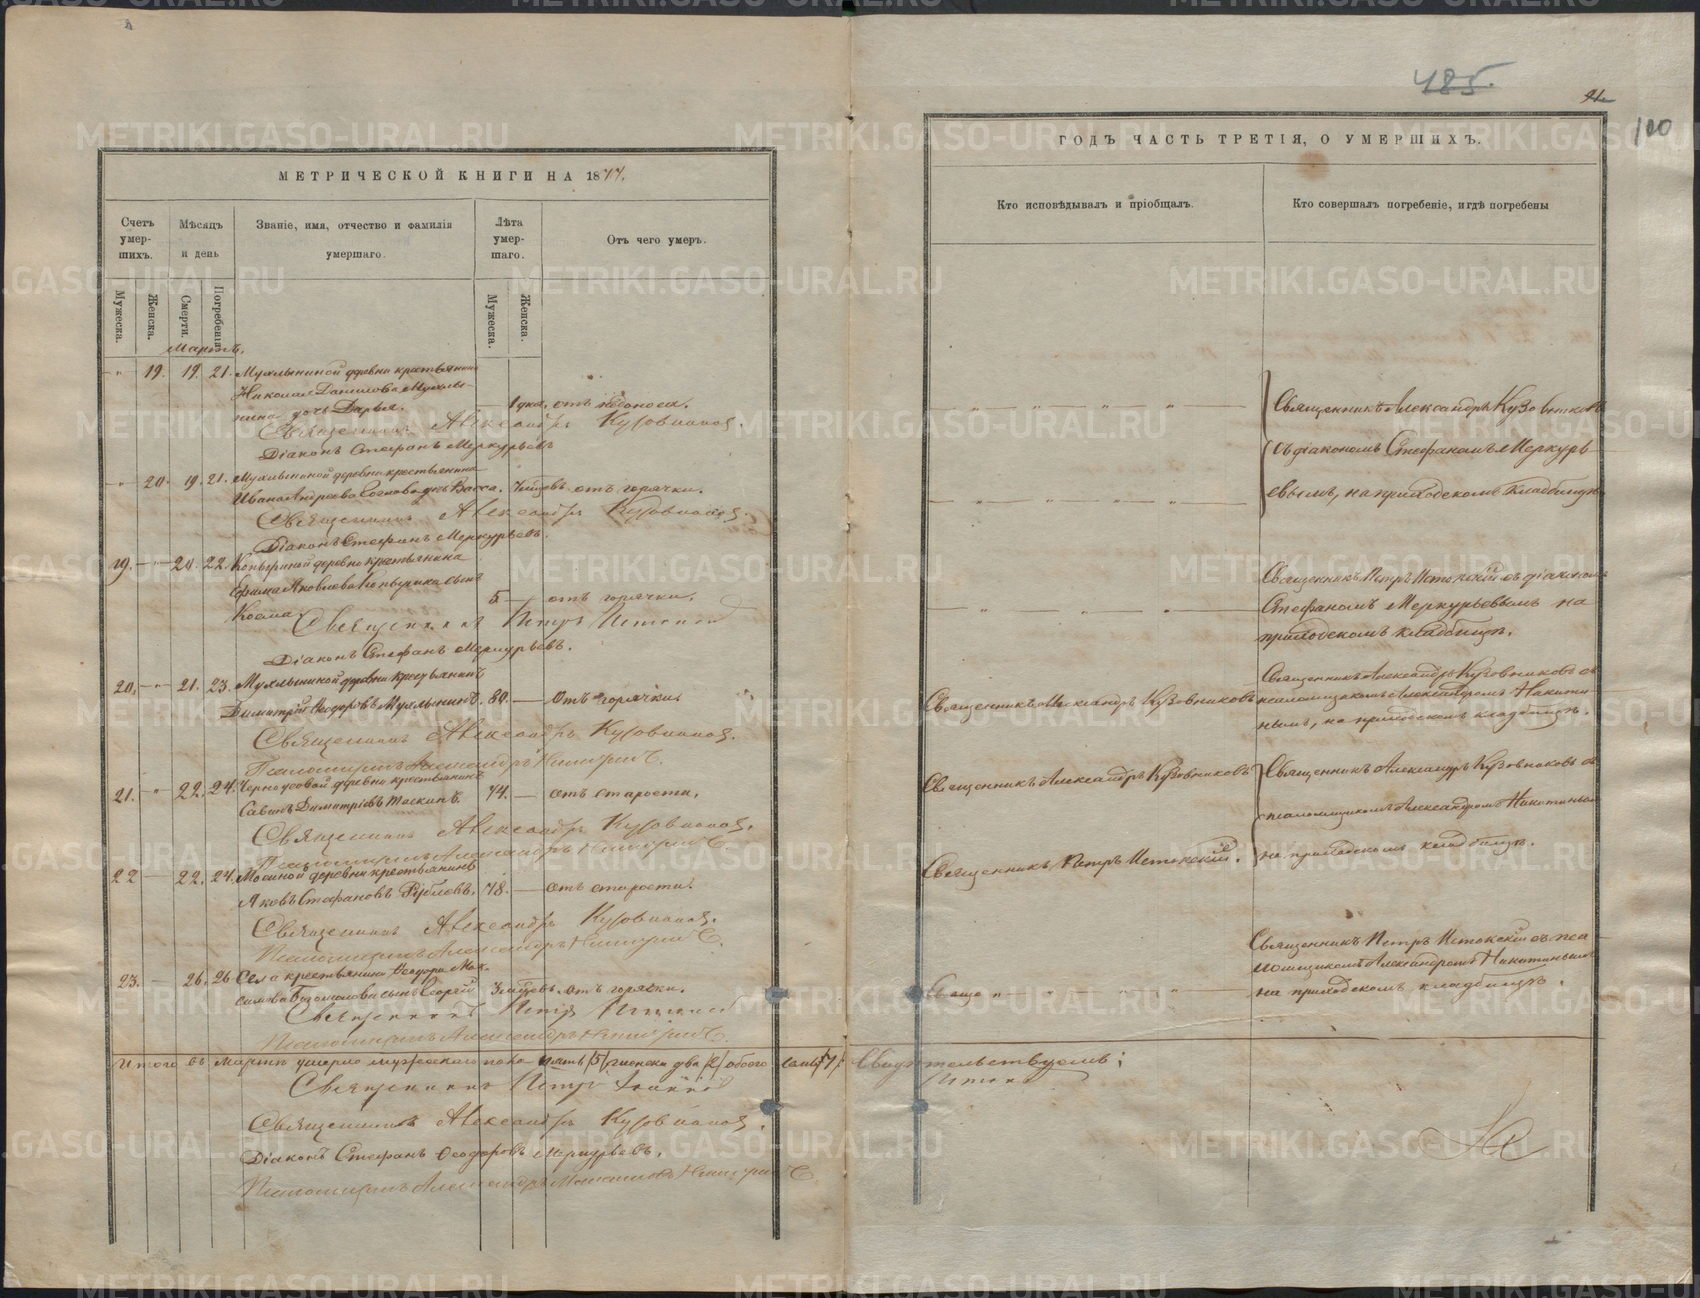 МЕТРИЧЕСКОЙ КНИГИ НА 1877.
Счетъ умерших.
Мѣсяцъ и день
Званіе, имя, отчество и фамилія умершаго.
Лѣта умершаго.
Отъ чего умеръ.
Мужеска.
Женска.
Смерти.
Погребенія.
Мужеска.
Женска.
Мартъ.
19. 19. 21. деревни крестьянина
Николая Данилова
дочь Дарья. 1 дня. отъ
Священникъ Александръ Кузовниковъ.
Діаконъ Стефанъ Меркурьевъ
20. 19. 21. деревни крестьянина
Ивана Андреева дочь Васса. отъ горячки.
Священникъ Александръ Кузовниковъ.
Діаконъ Стефанъ Меркурьевъ.
19. 20. 22. Копыриной деревни крестьянина
Ефима Яковлева Копырина сынъ
Косма 5 отъ горячки.
Священникъ Петръ Истокскій
Діаконъ Стефанъ Меркурьевъ.
20. 21. 23. деревни крестьянинъ
Димитрій Ѳеодоровъ 80. отъ горячки.
Священникъ Александръ Кузовниковъ.
Псаломщикъ Александръ Никитинъ.
21. 22. 24. Черноусовой деревни крестьянинъ
Савинъ Димитріевъ Таскинъ. 74. отъ старости.
Священникъ Александръ Кузовниковъ.
Псаломщикъ Александръ Никитинъ.
22 22. 24. Мосиной деревни крестьянинъ
Яковъ Стефановъ Рублевъ. 78. отъ старости.
Священникъ Александръ Кузовниковъ.
Псаломщикъ Александръ Никитинъ.
23. 26. 26 Села крестьянина Ѳеодора
сынъ Георгій отъ горячки.
Священникъ Петръ Истокскій
Псаломщикъ Александръ Никитинъ.
Итого въ Мартѣ умерло мужескаго пола пять /5/ женска два /2/ обоего семь /7/. Свидѣтельствуемъ:
Священникъ Петръ
Священникъ Александръ Кузовниковъ.
Діаконъ Стефанъ Ѳеодоровъ Меркурьевъ.
Псаломщикъ Александръ Никитинъ
485.
100
ГОДЪ ЧАСТЬ ТРЕТІЯ, О УМЕРШИХЪ.
Кто исповѣдывалъ и пріобщалъ.
Кто совершалъ погребеніе, и гдѣ погребены
Священникъ Александръ Кузовниковъ
съ діакономъ Стефаномъ Меркурьевымъ, на приходскомъ кладбищѣ.
Священникъ Петръ Истокскій съ діакономъ
Стефаномъ Меркурьевымъ на
приходскомъ кладбищѣ.
Священникъ Александръ Кузовниковъ
Священникъ Александръ Кузовниковъ съ
псаломщикомъ Александромъ Никитинымъ, на приходскомъ кладбищѣ.
Священникъ Александръ Кузовниковъ
Священникъ Александръ Кузовниковъ съ
псаломщикомъ Александромъ Никитинымъ
на приходскомъ кладбищѣ.
Священникъ Петръ Истокскій.
Священникъ Петръ Истокскій съ псаломщикомъ Александромъ Никитинымъ
на приходскомъ кладбищѣ.
METRIKI.GASO-URAL.RU